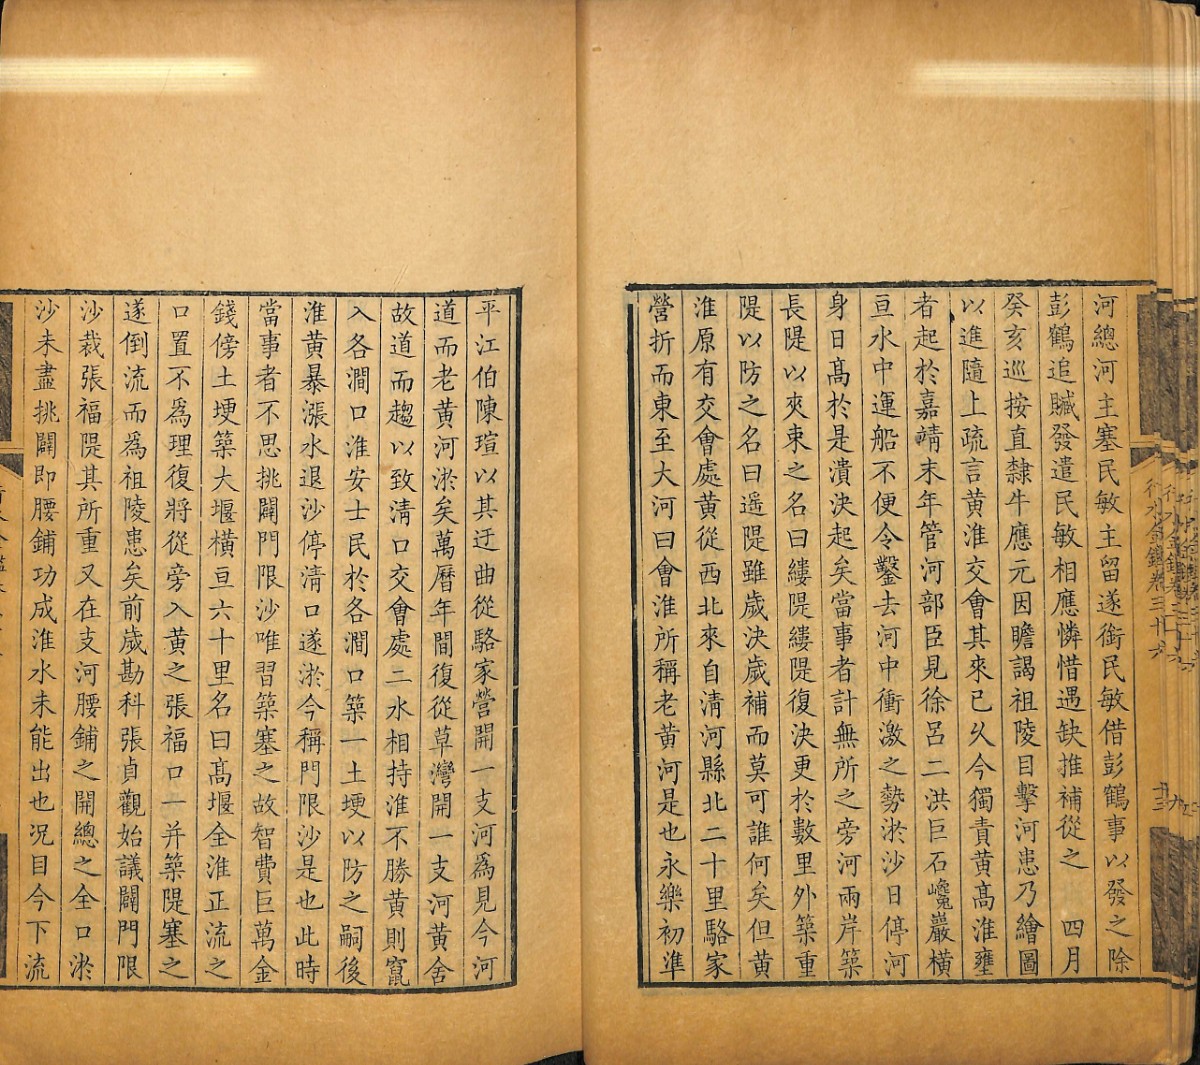 河總河主塞民敏主留遂銜民敏借彭鶴事以發之除
彭鶴追贓發遣民敏相應憐惜遇缺推補從之　四月
癸亥巡按直隸牛應元因瞻謁祖陵目擊河患乃繪圖
以進隨上疏言黃淮交會其來已久今獨責黃高淮壅
者起於嘉靖末年管河部臣見徐呂二洪巨石巉巖橫
亘水中運船不便令鑿去河中衝激之勢淤沙日停河
身日髙於是潰決起矣當事者計無所之旁河兩岸築
長隄以夾束之名曰縷隄縷隄復決更於數里外築重
隄以防之名曰遥隄雖歲決歲補而莫可誰何矣但黃
淮原有交會處黃從西北來自清河縣北二十里駱家
營折而東至大河曰會淮所稱老黃河是也永樂初準
平江伯陳瑄以其迂曲從駱家營開一支河為見今河
道而老黃河淤矣萬曆年間復從草灣開一支河黃舍
故道而趨以致清口交會處二水相持淮不勝黃則竄
入各澗口淮安士民於各澗口築一土埂以防之嗣後
淮黃暴漲水退沙停清口遂淤今稱門限沙是也此時
當事者不思挑闢門限沙唯習築塞之故智費巨萬金
錢傍土埂築大堰橫亘六十里名曰髙堰全淮正流之
口置不為理復將從旁入黃之張福口一并築隄塞之
遂倒流而為祖陵患矣前歲勘科張貞觀始議闢門限
沙裁張福隄其所重又在支河腰鋪之開總之全口淤
沙未盡挑闢即腰鋪功成淮水未能出也况目今下流